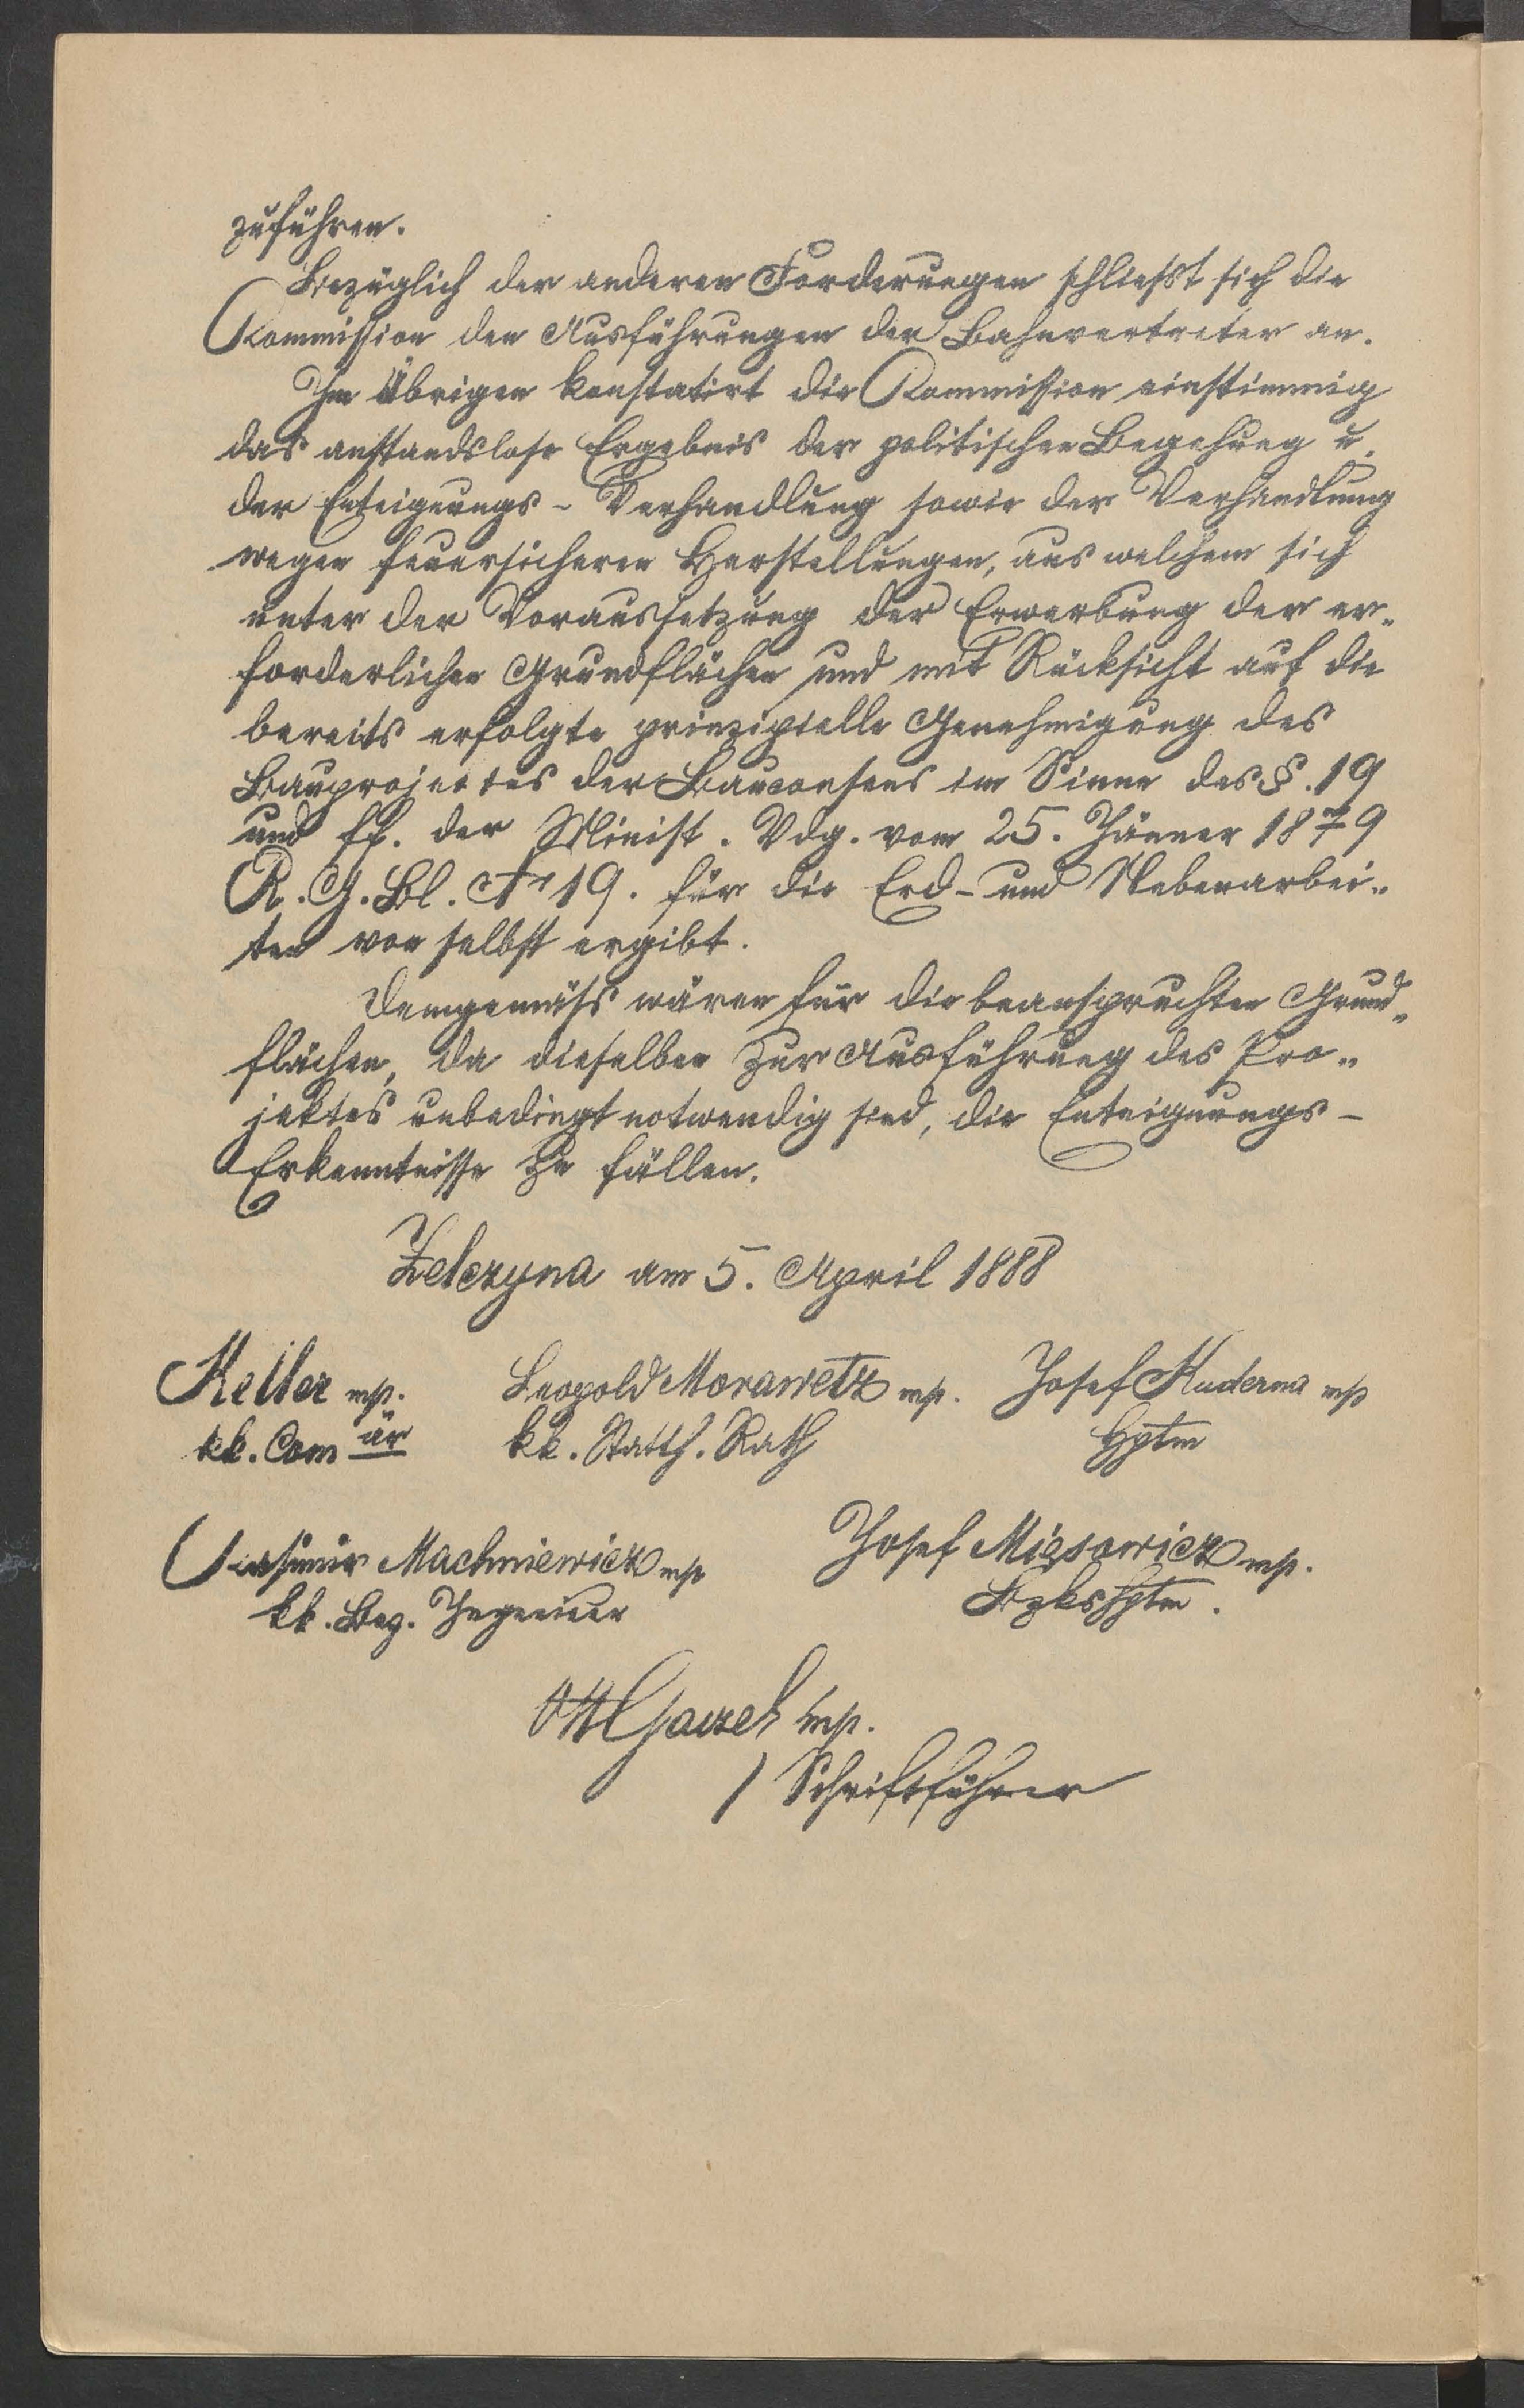 zuführen.
Bezüglich der anderen Forderungen schliesst sich die
Kommission den Ausführungen der Bahnvertreter an.
Im Übrigen konstatirt die Kommission einstimmig
das anstandslose Ergebnis der politischen Begehung u.
der Enteignungs-Verhandlung sowie der Verhandlung
wegen feuersicheren Herstellungen, aus welchem sich
unter der Voraussetzung der Erwerbung der er„
forderlichen Grundflächen und mit Rücksicht auf die
bereits erfolgte prinzipielle Genehmigung des
Bauprojectes der Bauconsens im Sinne des §. 19
und ff. der Minist. Vdg. vom 25. Jänner 1879
R. G. Bl. Nr 19. für die Erd- und Nebenarbei„
ten von selbst ergibt.
Demgemäss wären für die beanspruchten Grund„
flächen, da dieselben zur Ausführung des Pro„
jektes unbedingt notwendig sind, die Enteignungs-
Erkenntnisse zu fällen.
Zelczyna am 5. April 1888
Keller mp. Leopold Morawetz mp. Josef Kuderna mp
kk. Com är kk. Statth. Rath Hptm
Casimir Machniewicz mp Josef Mięsowicz mp.
kk. Bez. Ingenieur Bzkshptm.
mp.
Schriftführer